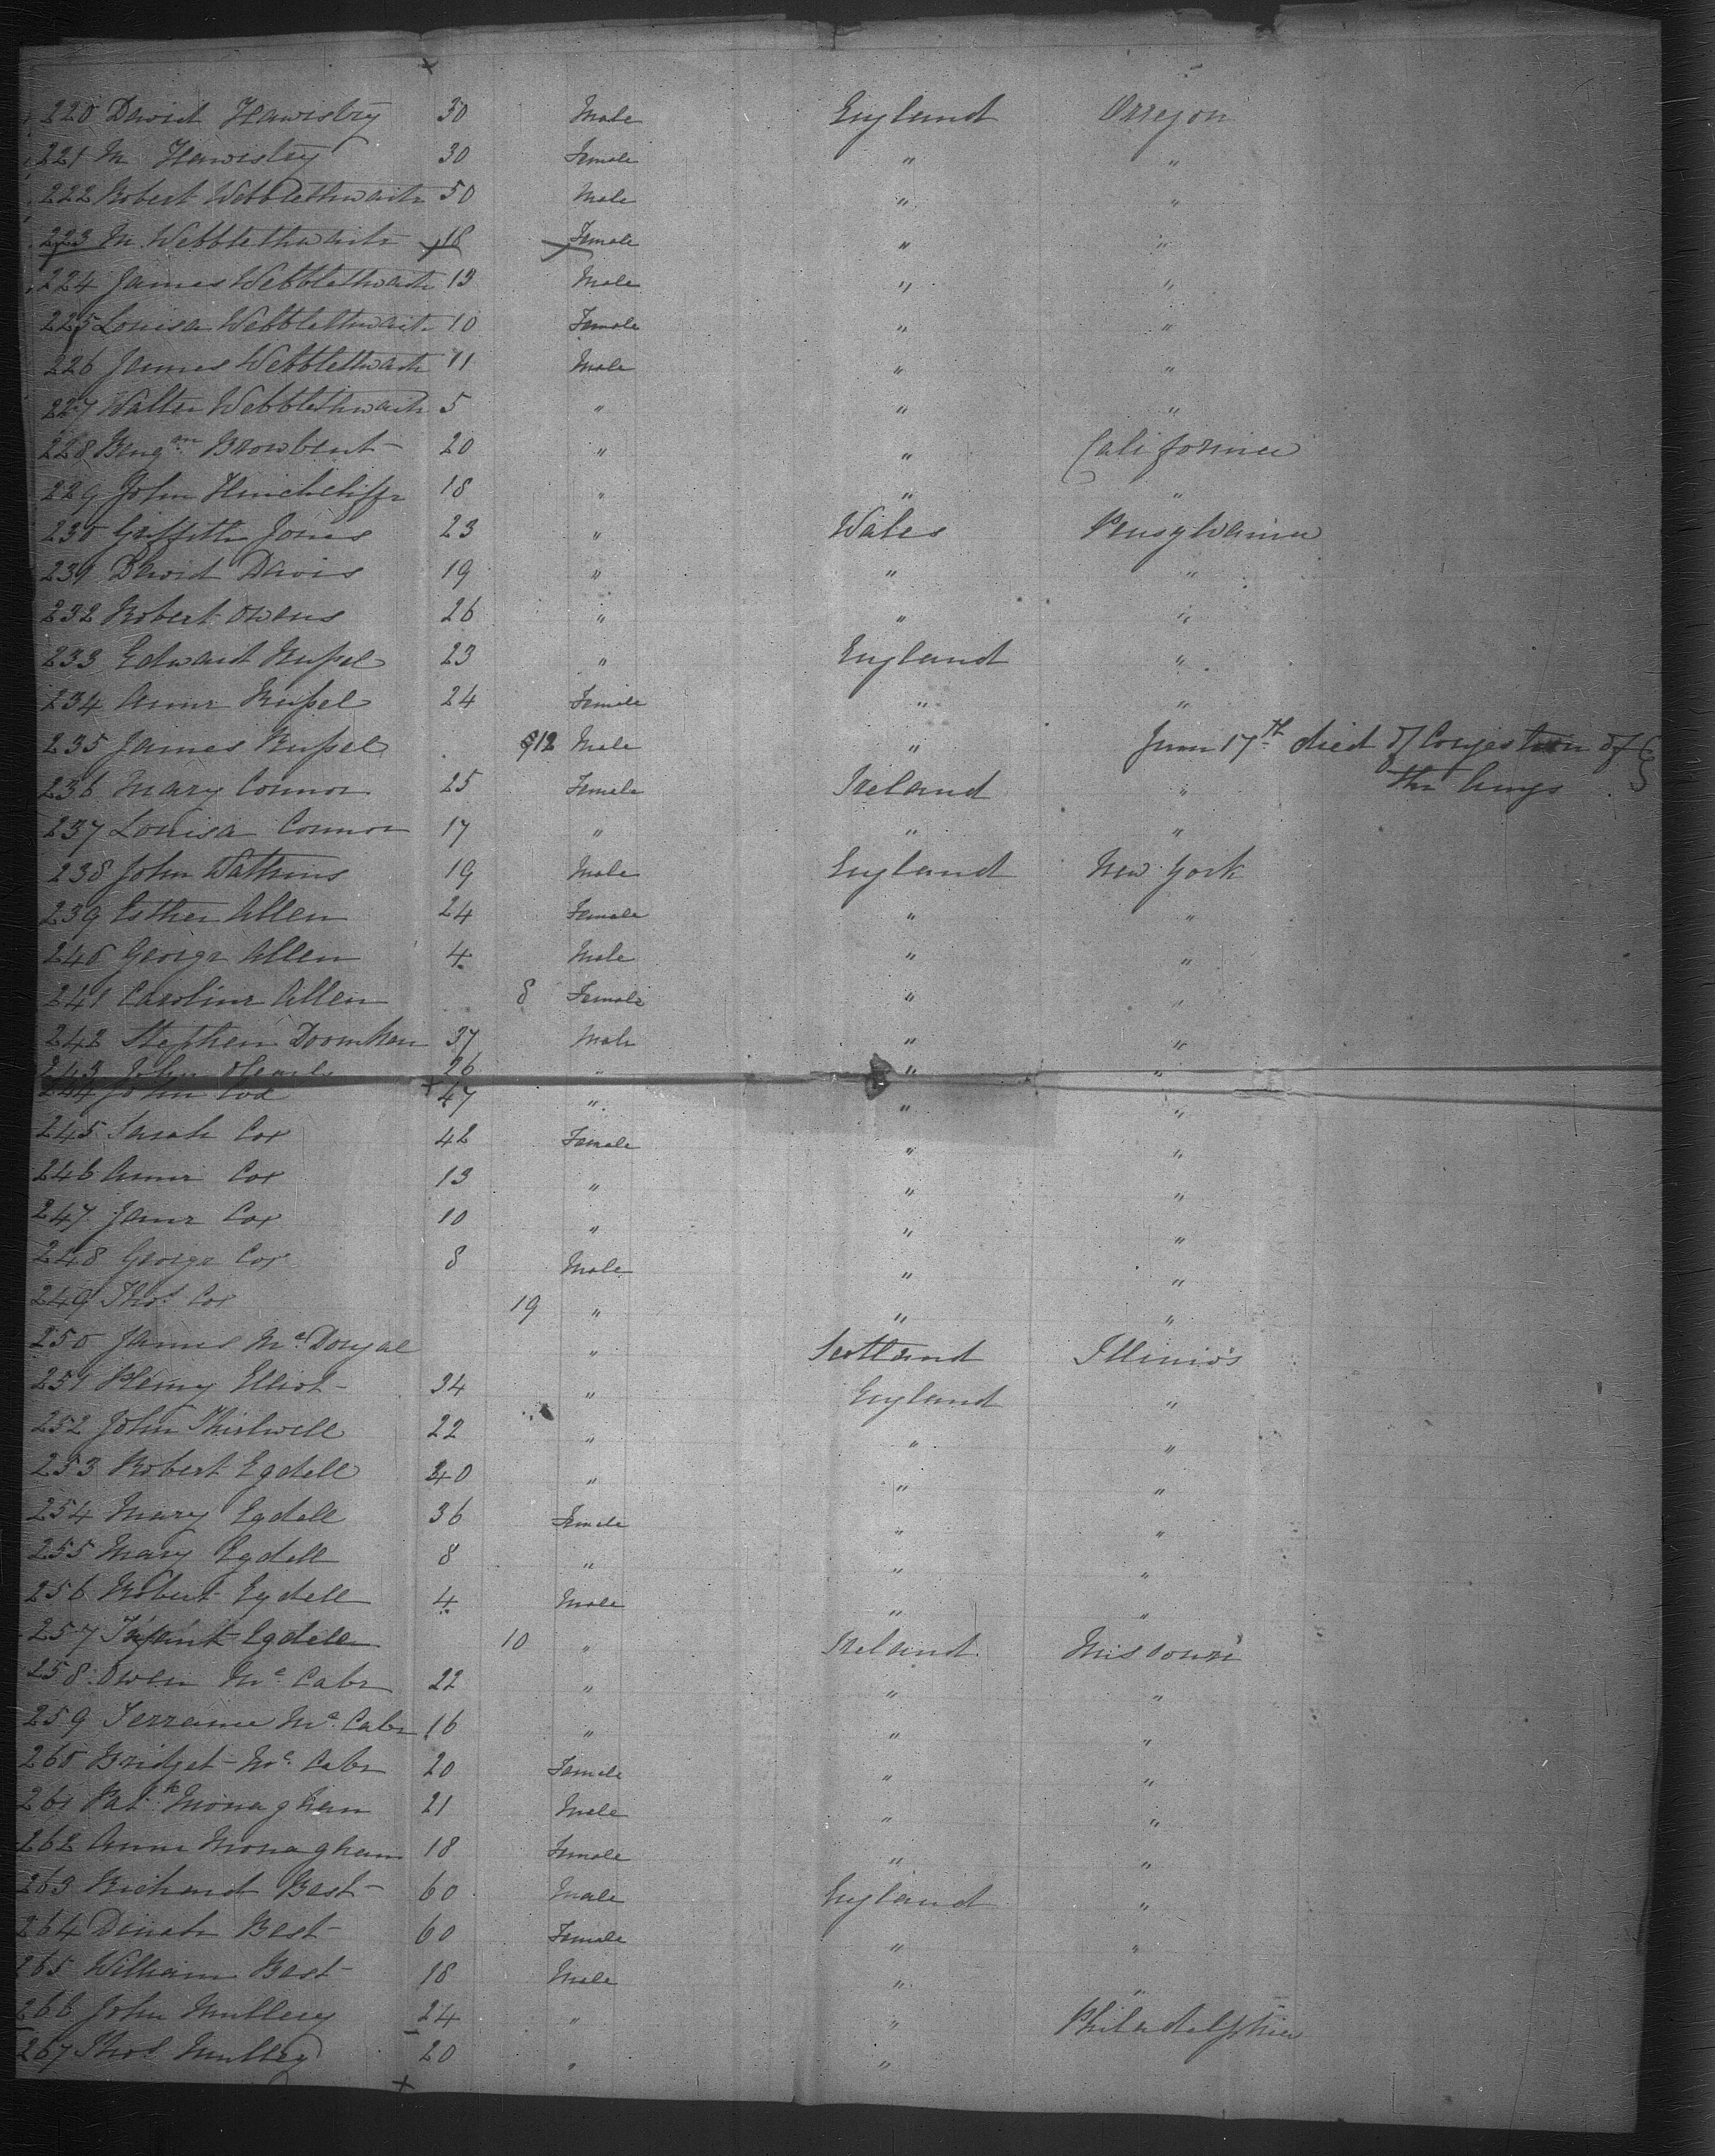 220 David Hawisby 30 Male England Orregon
221 M Hawisby 30 Female " "
222 Robert Webblethwaite 50 Male " "
223 M Webblethwaite 18 Female " "
224 James Webblethwaite 13 Male " "
225 Louisa Webblethwaite 10 Female " "
226 James Webblethwaite 11 Male " "
227 Walter Webblethwaite 5 " " "
228 Benjn Browbent 20 " " California
229 John Hinchcliffe 18 " " "
230 Griffith Jones 23 " Wales Pensylvania
231 David Davis 19 " " "
232 Robert Owens 26 " " "
233 Edward Rufsel 23 " England "
234 Anne Rufsel 24 Female " "
235 James Rufsel 12 Male " June 17th died of Congestion of
the lungs
236 Mary Connor 25 Female Ireland "
237 Louisa Connor 17 " " "
238 John Watkins 19 Male England New York
239 Esther Allen 24 Female " "
240 George Allen 4 Male " "
241 Caroline Allen 8 Female " "
242 Stephen 37 Male " "
243 John 26 " " "
244 John Cox 47 " " "
245 Sarah Cox 42 Female " "
246 Anne Cox 13 " " "
247 Jane Cox 10 " " "
248 George Cox 8 Male " "
249 Thos Cox 19 " " "
250 James Mc Dougal " Scotland Illinios
251 Henry Elliot 34 " England "
252 John Thirlwell 22 " " "
253 Robert Egdell 40 " " "
254 Mary Egdell 36 Female " "
255 Mary Egdell 8 " " "
256 Robert Egdell 4 Male " "
257 Infant Egdell 10 " Ireland Missouri
258 Owen Mc Cabe 22 " " "
259 Terrance Mc Cabe 16 " " "
260 Bridget Mc Cabe 20 Female " "
261 Patk Monaghan 21 Male " "
262 Anne Monaghan 18 Female " "
263 Richard Best 60 Male England "
264 Dinah Best 60 Female " "
265 William Best 18 Male " "
266 John Mullery 24 " " Philadelphia
267 Thos Mullery 20 " "